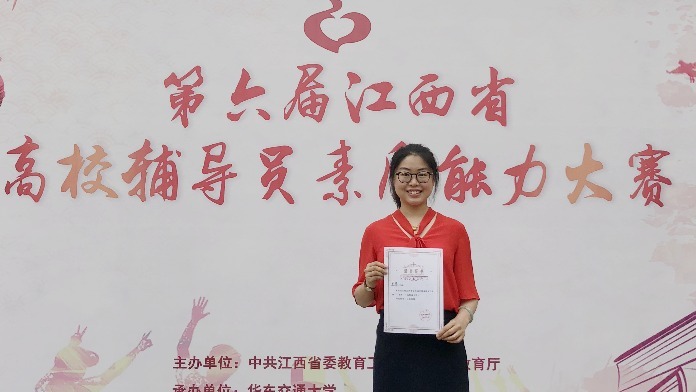 第六届江西省
高校辅导员素 能力大赛
主办单位：中共江西省委教育工 教育厅
承办单位：华东交通大学